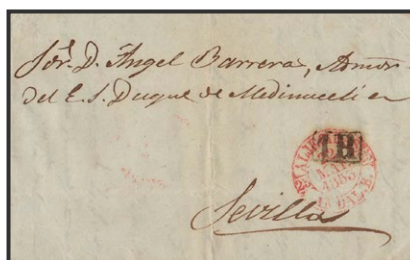 Sor. D. Angel Barrera, Admor.
del E. S. Duque de Medinaceli en
1R
1853
Sevilla